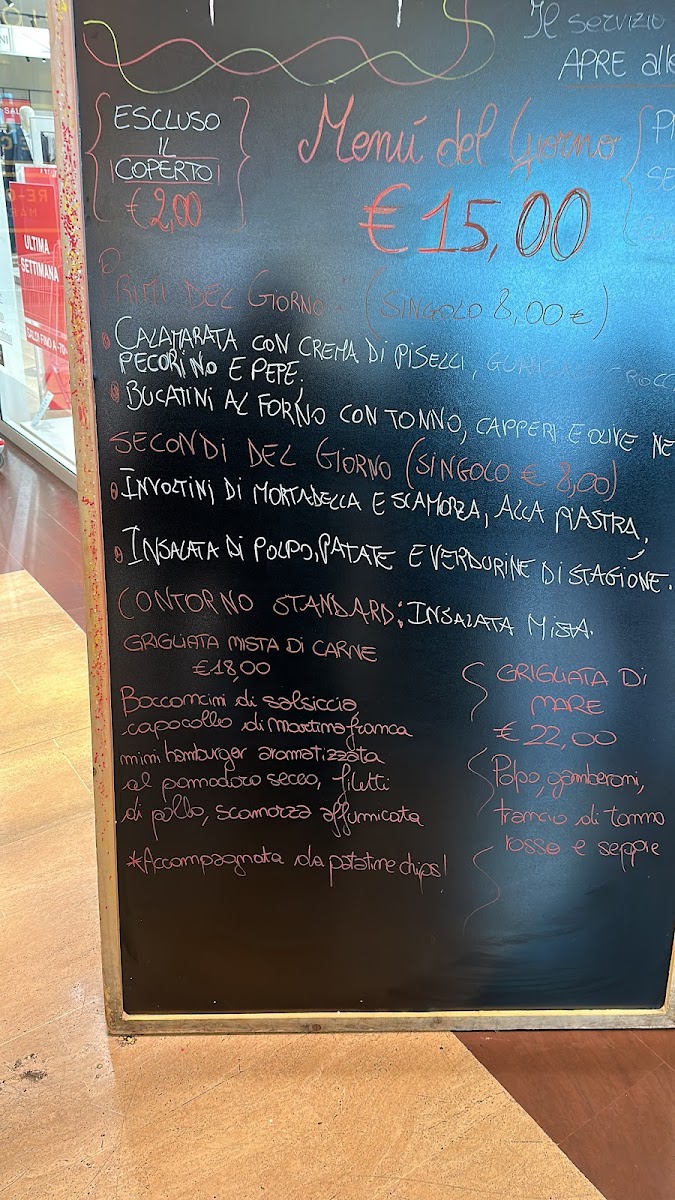 Il servizio
APRE alle
ESCLUSO
IL
COPERTO
€ 2,00
Menú del Giorno
€ 15,00
SE
ULTIMA
SETTIMANA
PRIMI DEL GIORNO: (SINGOLO 8,00 €)
CALAMARATA CON CREMA DI PISELLI,
PECORINO E PEPE,
BUCATINI AL FORNO CON TONNO, CAPPERI E OLIVE NE
SECONDI DEL GIORNO (SINGOLO € 8,00)
INVOLTINI DI MORTADELLA E SCAMORZA, ALLA PIASTRA,
INSALATA DI POLPO, PATATE E VERDURINE DI STAGIONE.
CONTORNO STANDARD: INSALATA MISTA.
GRIGLIATA MISTA DI CARNE
€ 18,00
Bocconcini di salsiccia
capocollo di martina franca
mini hamburger aromatizzata
al pomodoro secco, filetti
di pollo, scamorza affumicata
*Accompagnata da patatine chips!
GRIGLIATA DI
MARE
€ 22,00
Polpo, gamberoni,
trancio di tonno
rosso e seppie